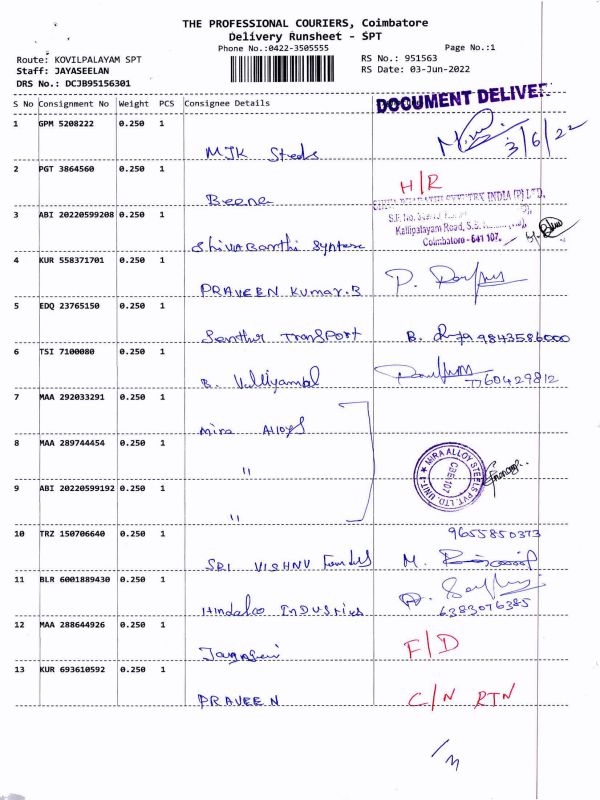 THE PROFESSIONAL COURIERS, Coimbatore
Delivery Runsheet - SPT
Phone No.:0422-3505555
Page No.:1
Route: KOVILPALAYAM SPT
RS No.: 951563
Staff: JAYASEELAN
RS Date: 03-Jun-2022
DRS No.: DCJB95156301
S No Consignment No Weight PCS Consignee Details
DOCUMENT DELIVER
1 GPM 5208222 0.250 1
MJK Steels
3/6/22
2 PGT 3864560 0.250 1
Beena
H/R
3 ABI 20220599208 0.250 1
INDIA (P) LTD,
S.F. No.
Kallipalayam Road, S.S.
Coimbatore - 641 107.
4 KUR 558371701 0.250 1
PRAVEEN Kumar.B
P.
5 EDQ 23765150 0.250 1
Senthur TRANSPORT
B. 9843586000
6 TSI 7100080 0.250 1
B. Valliyammal
7760429812
7 MAA 292033291 0.250 1
Mira Alloys
8 MAA 289744454 0.250 1
"
MIRA ALLOY STEELS PVT. LTD. UNIT-1
CBE-107
9 ABI 20220599192 0.250 1
"
10 TRZ 150706640 0.250 1
9655850373
SRI VISHNU
M.
11 BLR 6001889430 0.250 1
Hindalco INDUSTRIES
6383076385
12 MAA 288644926 0.250 1
F/D
13 KUR 693610592 0.250 1
PRAVEEN
C/N RTN